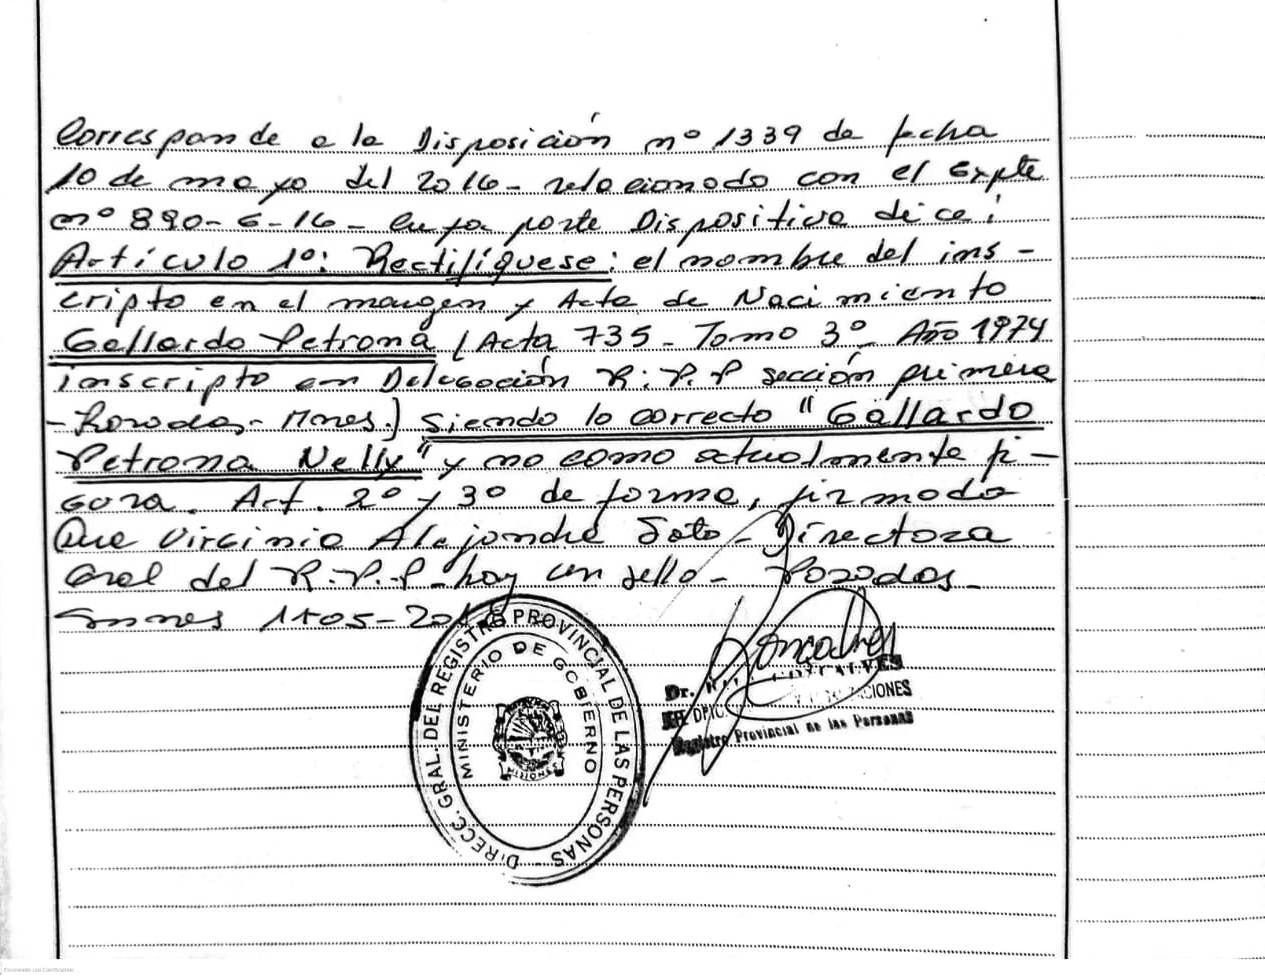 Corresponde a la Disposición nº 1339 de fecha
10 de mayo del 2016 - relacionado con el Expte
nº 890-G-16 - cuya parte Dispositiva dice:
Artículo 1º: Rectifíquese: el nombre del ins-
cripto en el margen y Acta de Nacimiento
Gallardo Petrona (Acta 735 - Tomo 3º - Año 1974
inscripto en Delegación R.P.P sección primera
- Posadas - Mnes.) siendo lo correcto "Gallardo
Petrona Nelly" y no como actualmente fi-
gura. Art. 2º y 3º de forma, firmado
Dra Virginia Alejandra Soto - Directora
Gral del R.P.P - hay un sello - Posadas -
mnes 11-05-2016
DIRECC. GRAL. DEL REGISTRO PROVINCIAL DE LAS PERSONAS
MINISTERIO DE GOBIERNO
MISIONES
Dr.
Registro Provincial de las Personas